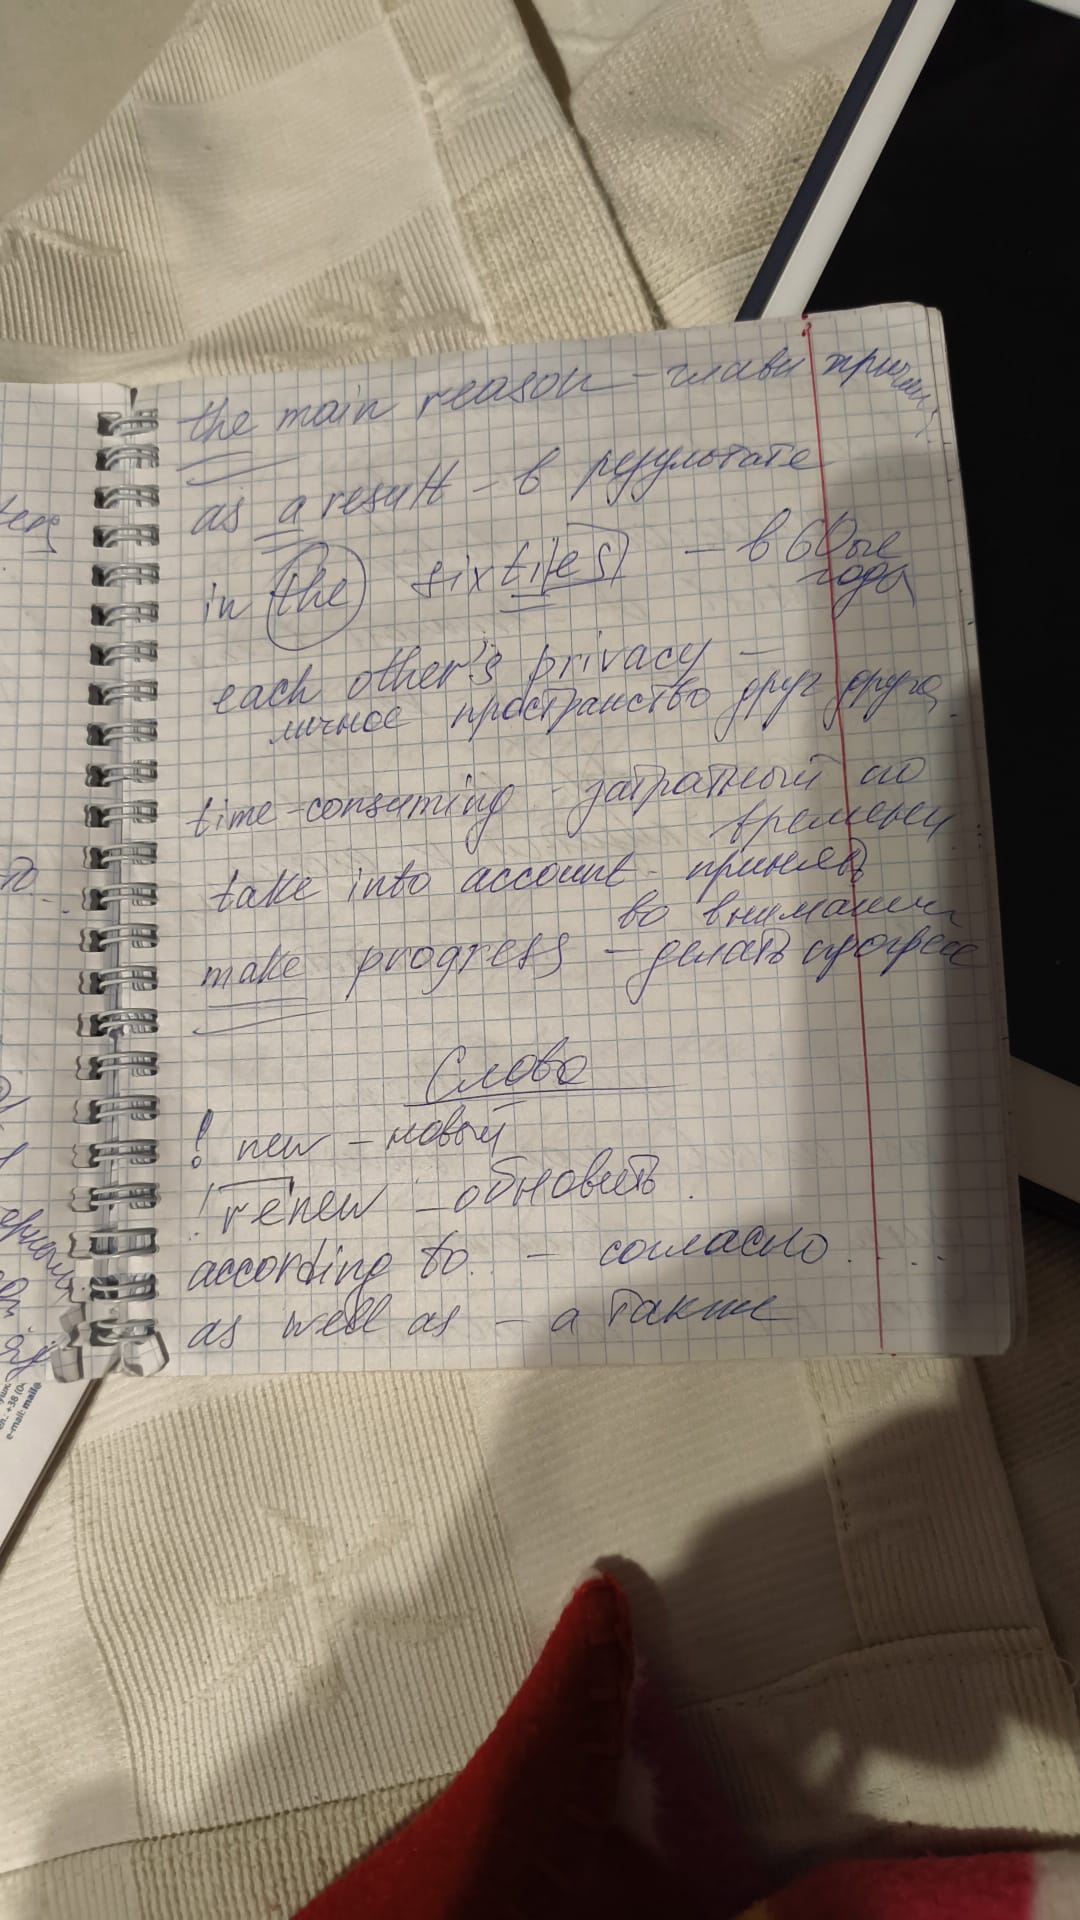 the main reason - главн причина
as a result - в результате
in the sixties - в 60ые
годы
each other's privacy -
личное пространство друг друга
time-consuming - затратный по
времени
take into account - принять
во внимание
make progress - делать прогресс
Слова
! new - новый
! renew - обновить.
according to - согласно.
as well as - а также
e-mail: